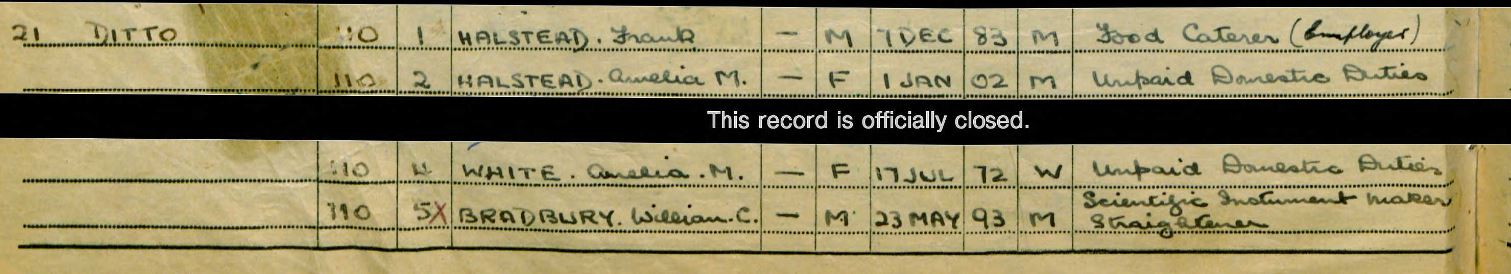 21 DITTO 110 1 HALSTEAD. Frank — M 7 DEC 83 M Food Caterer (Employer)
110 2 HALSTEAD. Amelia M. — F 1 JAN 02 M Unpaid Domestic Duties
This record is officially closed.
110 4 WHITE. Amelia. M. — F 17 JUL 72 W Unpaid Domestic Duties
110 5X BRADBURY. William. C. — M 23 MAY 93 M Scientific Instument Maker
Straightener